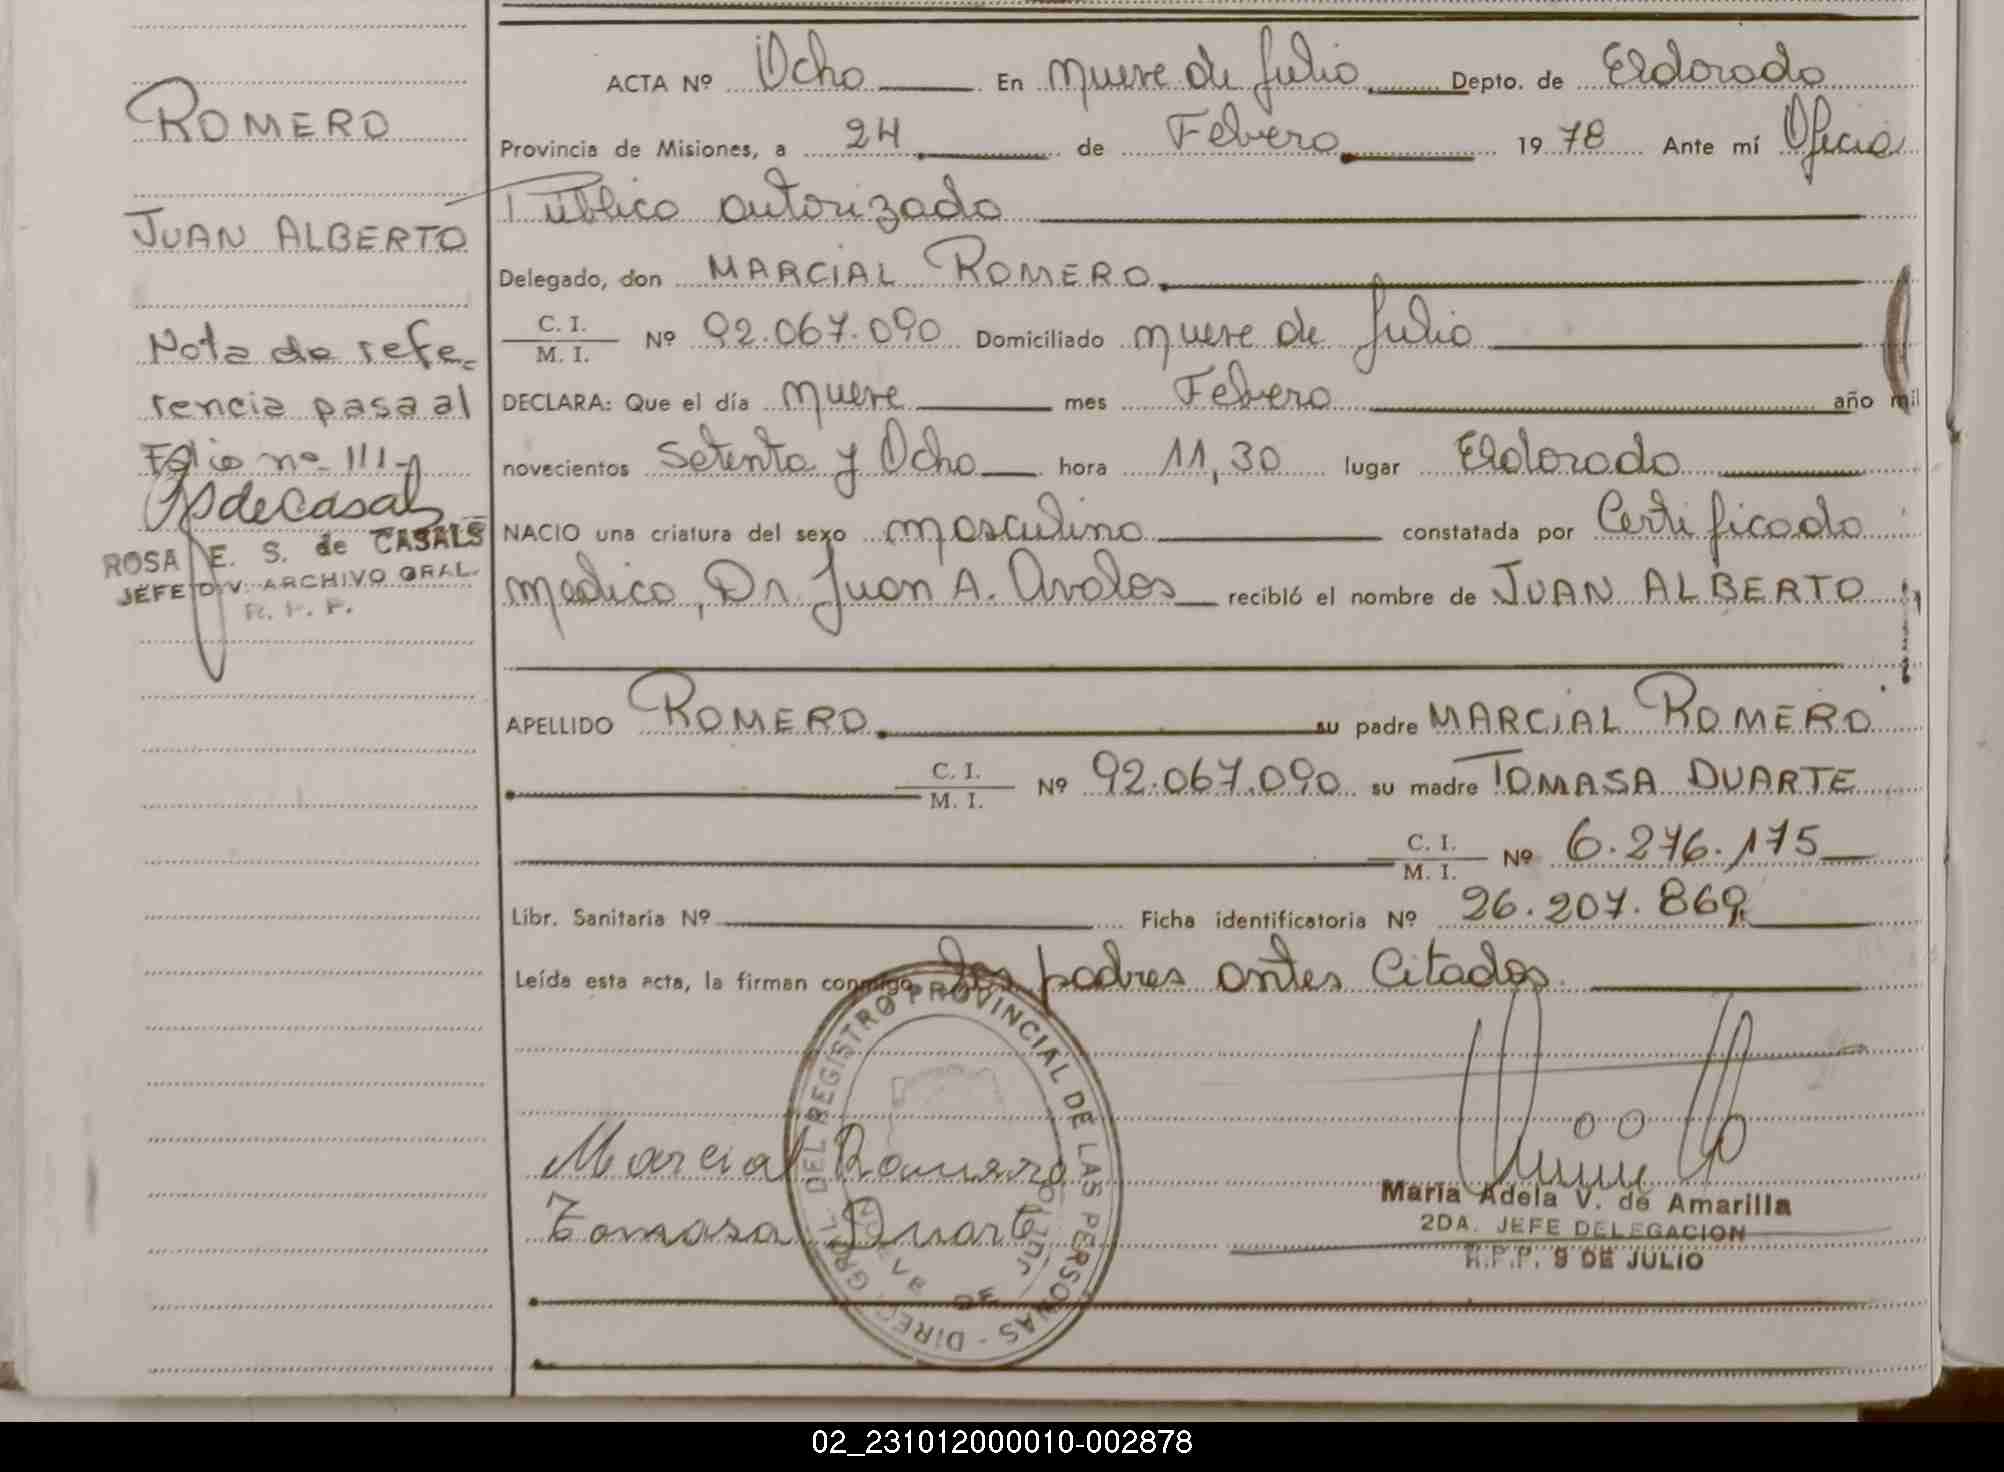 ROMERO
JUAN ALBERTO
Nota de refe-
rencia pasa al
Folio nº 111-
RSdeCasals
ROSA E. S. de CASALS
JEFE DIV. ARCHIVO GRAL.
R. P. P.
ACTA Nº Ocho En nueve de Julio Depto. de Eldorado
Provincia de Misiones, a 24 de Febrero 1978 Ante mí Oficial
Público autorizado
Delegado, don MARCIAL ROMERO
C. I.
M. I. Nº 92.067.090 Domiciliado nueve de Julio
DECLARA: Que el día nueve mes Febrero año mil
novecientos Setenta y Ocho hora 11,30 lugar Eldorado
NACIO una criatura del sexo masculino constatada por Certificado
medico, Dr. Juan A. Avalos recibió el nombre de JUAN ALBERTO
APELLIDO ROMERO su padre MARCIAL ROMERO
C. I.
M. I. Nº 92.067.090 su madre TOMASA DUARTE
C. I.
M. I. Nº 6.276.175
Libr. Sanitaria Nº Ficha identificatoria Nº 26.207.869
Leída esta acta, la firman conmigo los padres antes Citados
DIREC. GRAL. DEL REGISTRO PROVINCIAL DE LAS PERSONAS
NUEVE DE JULIO
Marcial Romero
Tomasa Duarte
Maria Adela V. de Amarilla
2DA. JEFE DELEGACION
R.P.P. 9 DE JULIO
02_231012000010-002878